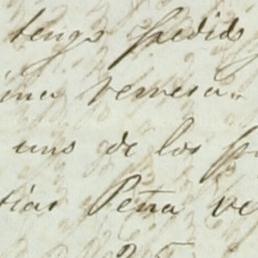 tengo pedido
ina remesa.
uno de los
tias Peña ve